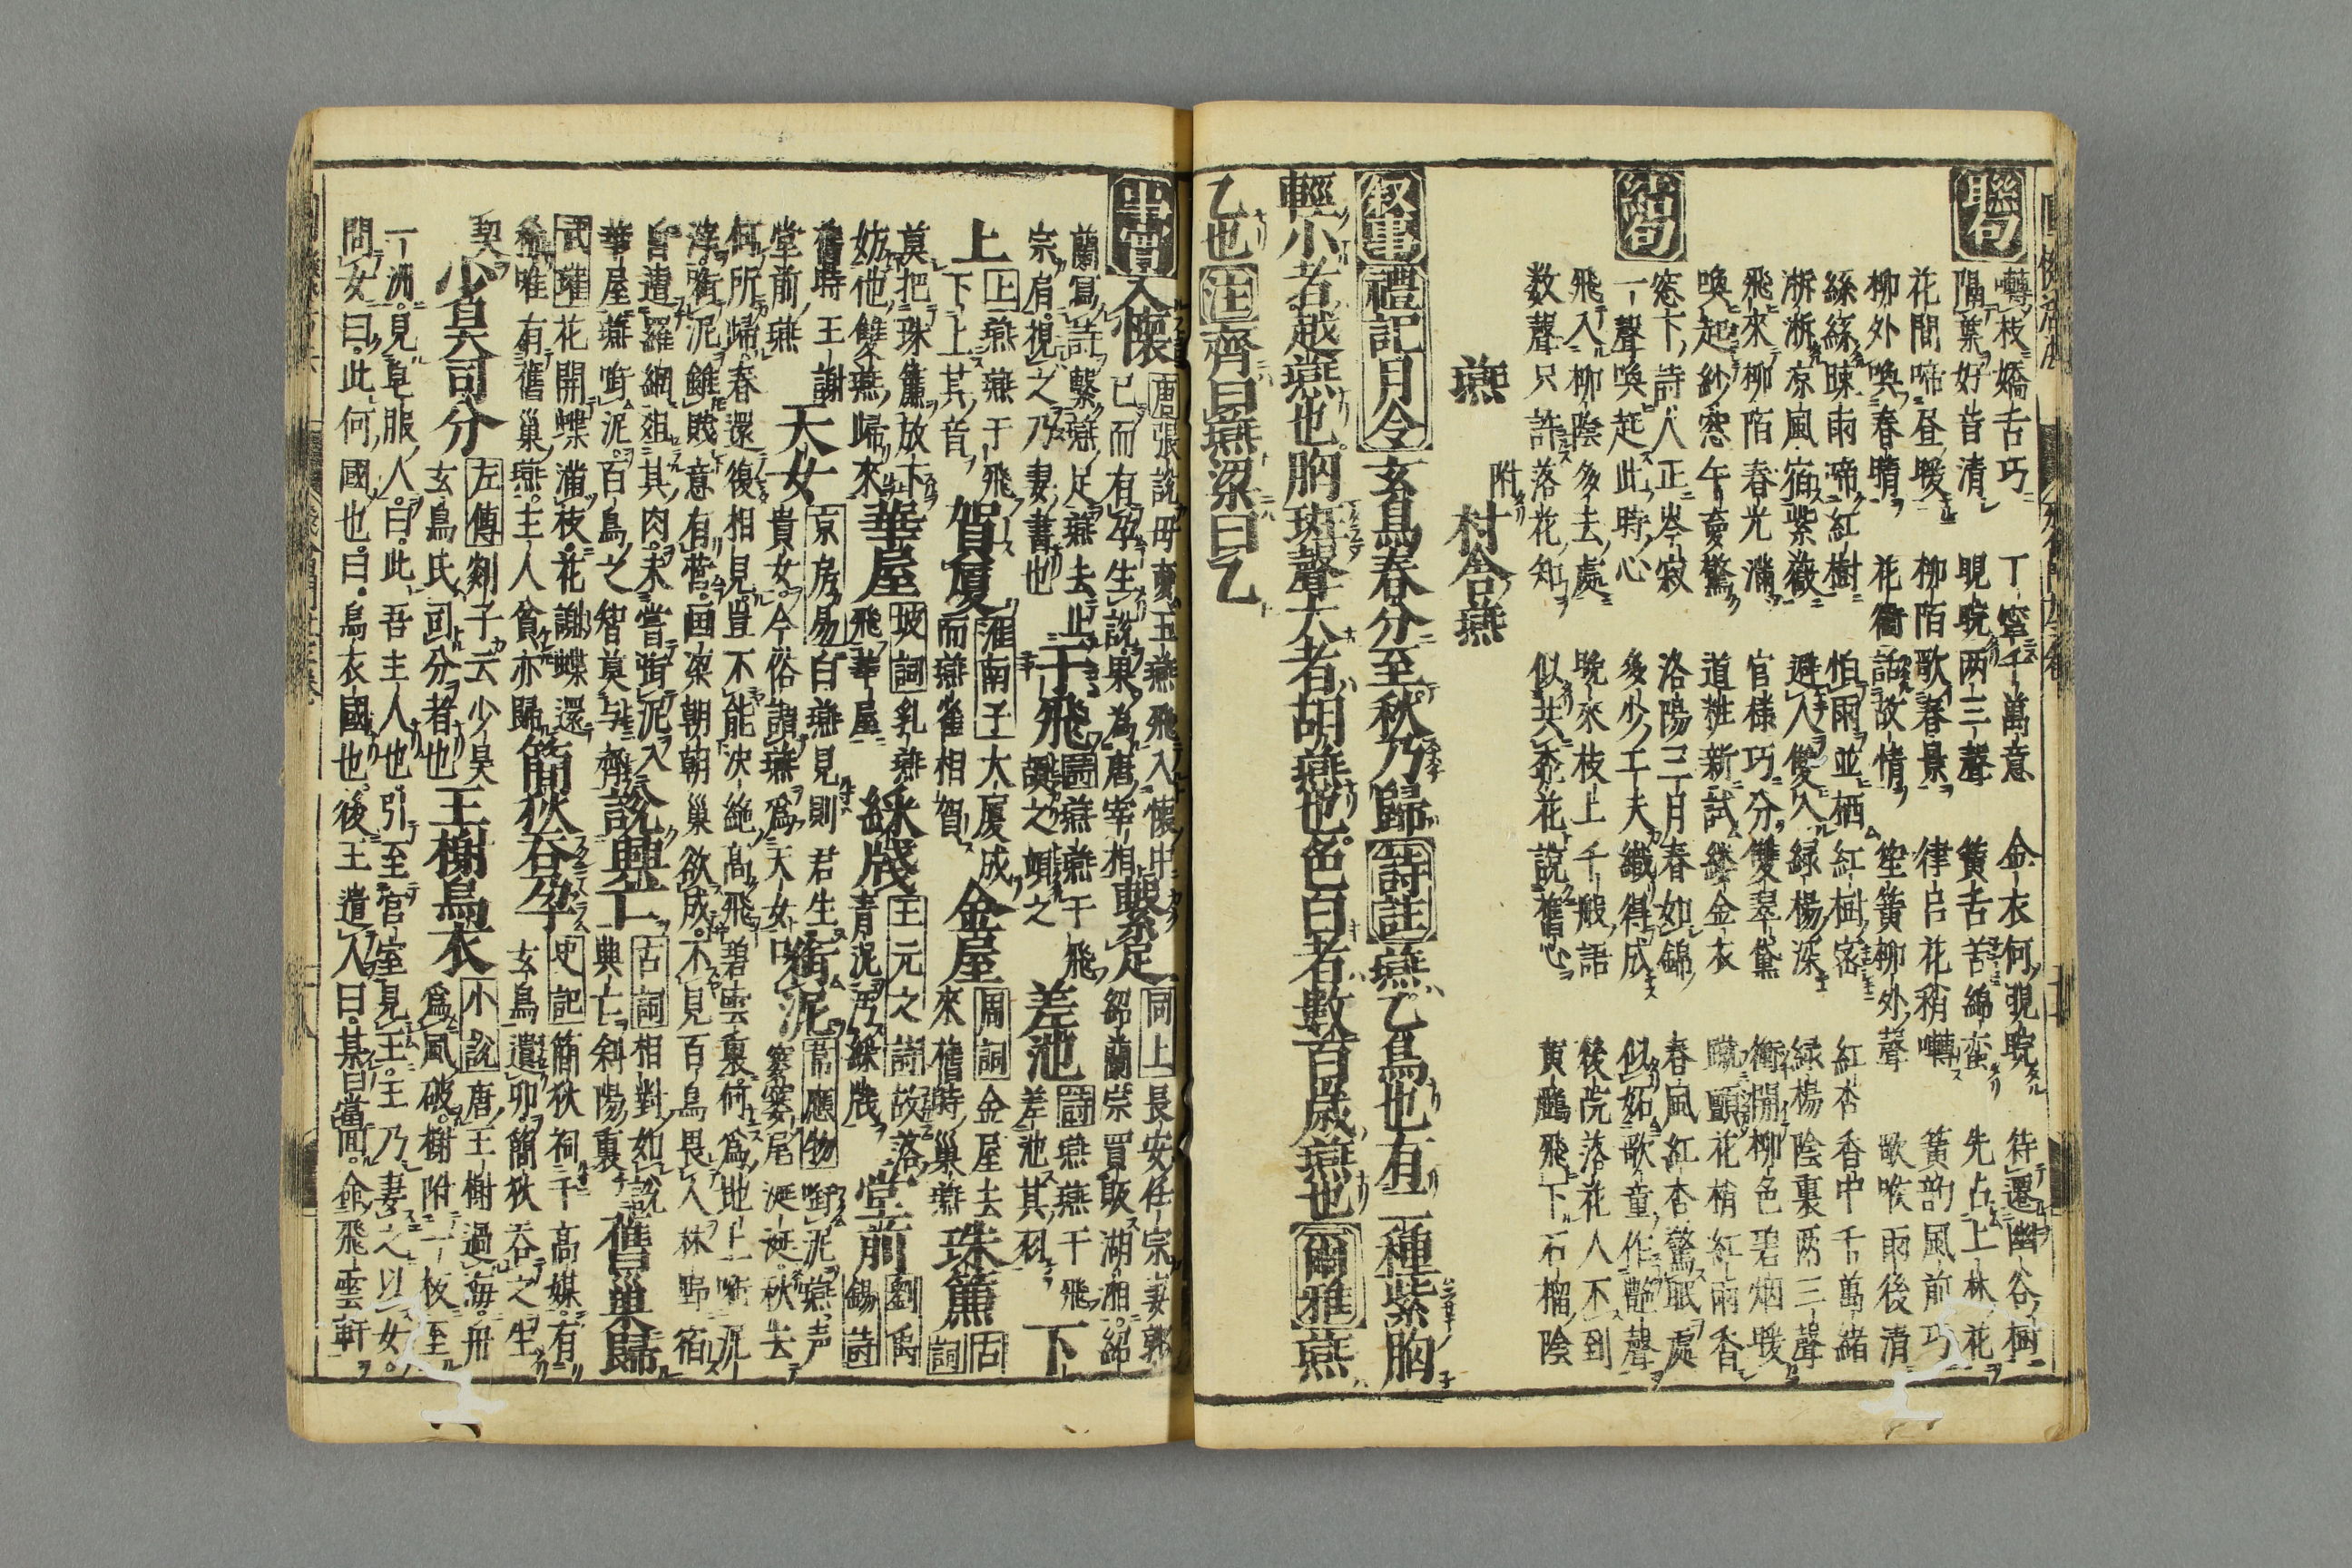 聯句
囀枝嬌舌巧 丁寧千萬意 金衣何睍睆 待遷幽谷樹
隔葉好音清 睍睆两三聲 簧舌苦綿蛮 先占上林花
花間啼昼暖 柳陌歌春景 律呂花稍囀 簧韵風前巧
柳外喚春晴 花衢話故情 笙簧柳外聲 歌喉雨後清
絲絲踈雨啼紅樹 怕雨並栖紅樹密 紅杏香中千萬緒
淅淅凉風宿紫薇 避人雙入緑楊深 緑楊陰裏两三聲
飛來柳陌春光滿 官様巧分雙翠黛 衝開柳色碧烟暖
喚起紗窓午夢驚 道粧新試縷金衣 蹴顫花梢紅雨香
結句
窓下詩人正岑寂 洛陽三月春如錦 春風紅杏驚眠處
一聲喚起此時心 多少工夫織得成 似妬歌童作艶聲
飛入柳陰多去處 晩來枝上千般語 後院落花人不到
数聲只許落花知 似共桼花說舊心 黄鸝飛下石榴陰
燕 附 村舎燕
叙事 禮記月令 玄鳥春分至秋乃歸 詩註 燕乙鳥也有二種紫胸
輕小者越燕也胸斑聲大者胡燕也色白者數百歲燕也 爾雅 燕
乙也 注 齊曰燕梁曰乙
事實 入懷 唐張說母夢玉燕飛入懷中
已而有孕生說果為唐宰相 繫足 同上 長安任宗妻郭
紹蘭宗買販湖湘紹
蘭寫詩繫燕足燕去止
宗肩視之乃妻書也 于飛 詩 燕燕于飛
頡之頏之 差池 詩 燕燕于飛
差池其羽 下
上 上 燕燕于飛
下上其音 賀厦 淮南子 大厦成
而燕雀相賀 金屋 周詞 金屋去
來舊時巢燕 珠簾 古詞
莫把珠簾放下
妨他雙燕歸來 華屋 坡詞 乳燕
飛華屋 綵牋 王元之詩 故落
青泥汚綵牋 堂前 劉禹錫詩
舊時王謝
堂前燕 天女 京房易 白燕見則君生
貴女今俗謂燕為天女 銜泥 韋應物 啣泥燕声
喽喽尾涎涎秋去
何所歸春還復相見豈不能决絶高飛碧雲裏何為地上啣泥
滓銜泥雖賤意有营画梁朝朝巢欲成不見百鳥畏人林野宿
旨遭羅網俎其肉未嘗啣泥入
華屋燕啣泥百鳥之智莫与齊 說興亡 古詞 相對如說
典亡斜陽裏 舊巢歸
武瓘 花開蝶滿枝花謝蝶還
稀唯有舊巢燕主人貧亦歸 簡狄吞孕 史記 簡狄祠于高媒有
玄鳥遺卵簡狄吞之生
契 少昊司分 左傳 剡子云少昊
玄鳥氏司分者也 王榭烏衣 小說 唐王榭過海舟
為風破榭附一板至
一洲見皁服人曰此吾主人也引至官室見王王乃妻之以女
問女曰此何國也曰烏衣國也後王遣人曰某日當回命飛雲軒